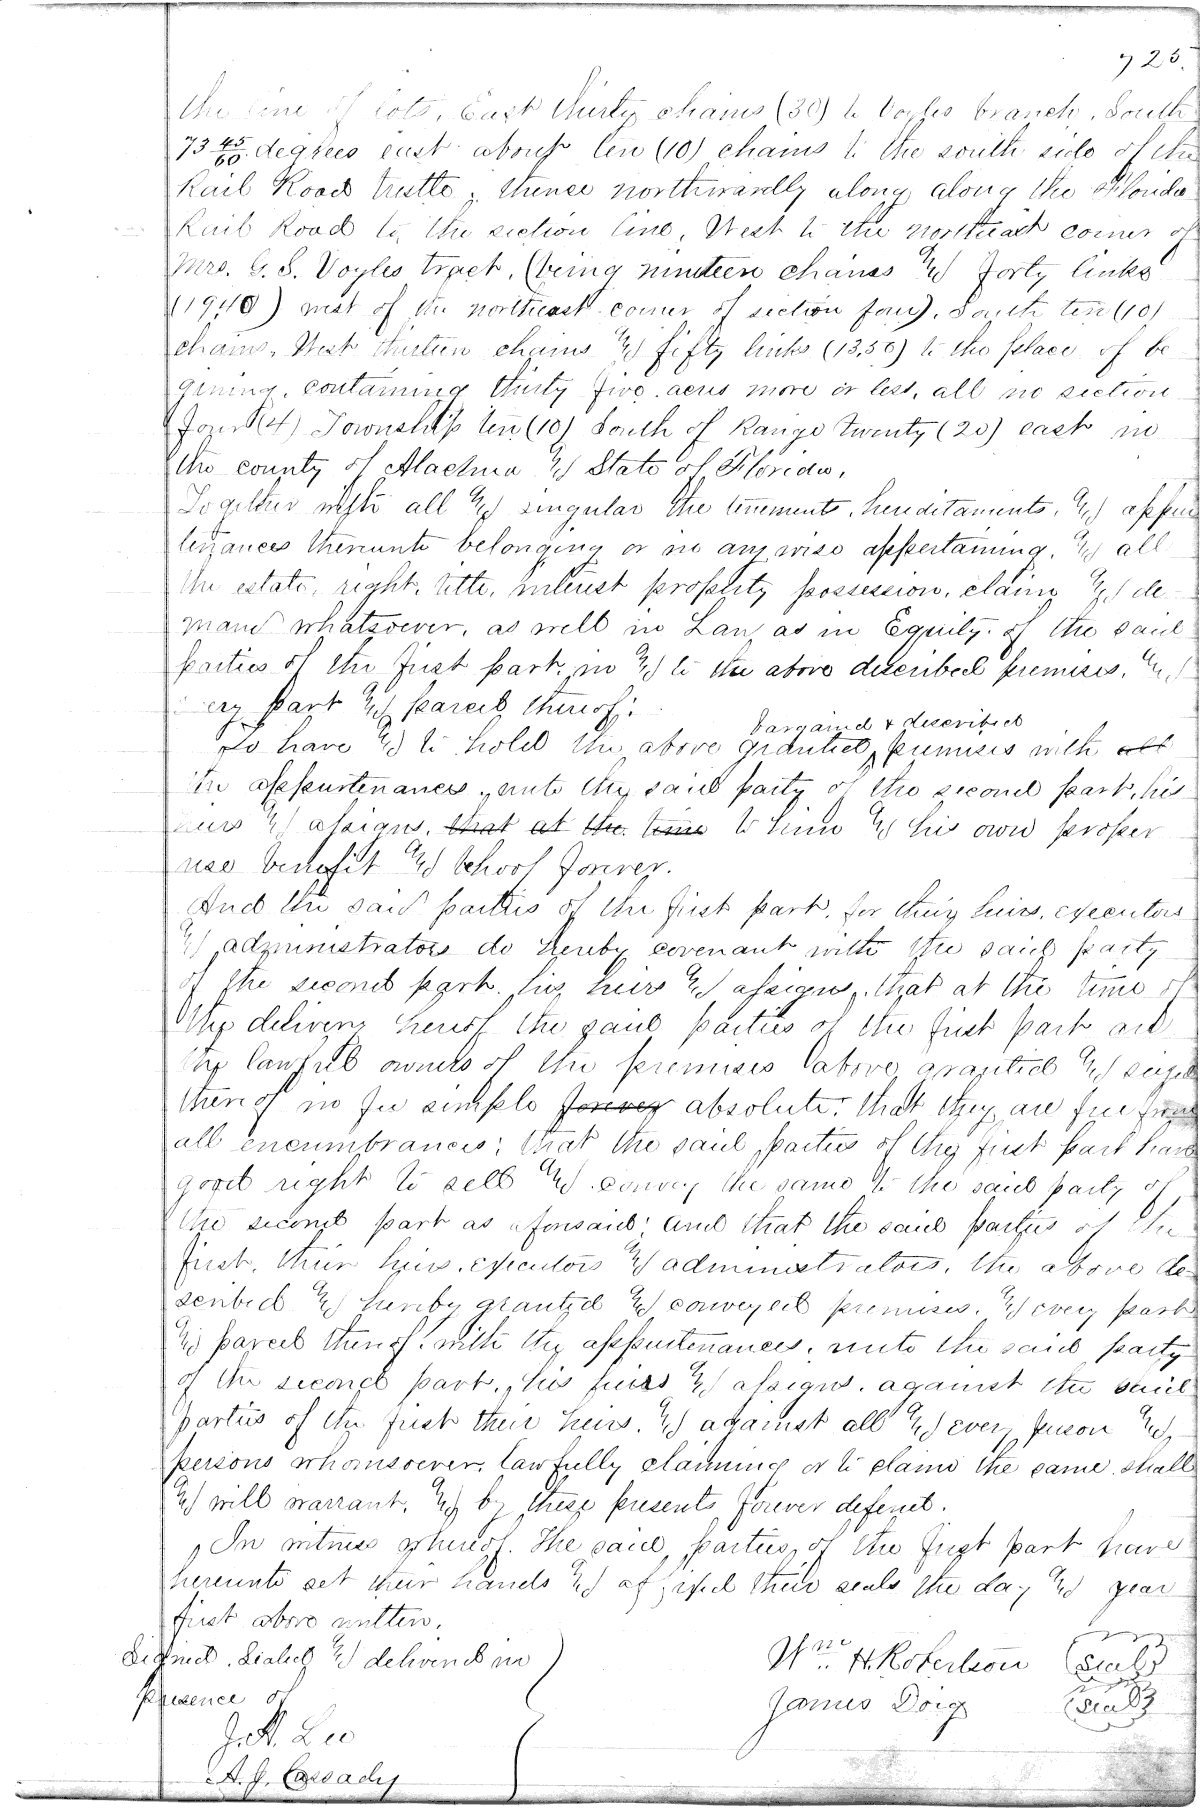 725.
the line of lots, East thirty chains (30) to Voyles branch, South
73 45/60 degrees east about ten (10) chains to the south side of the
Rail Road trestle; thence northwardly along along the Florida
Rail Road to the section line, West to the northeast corner of
Mrs. G. S. Voyles tract, (being nineteen chains & forty links
(19,40) west of the northeast corner of section four), South ten (10)
chains, West thirteen chains & fifty links (13,50) to the place of be
gining, containing thirty five acres more or less, all in section
four (4) Township ten (10) South of Range twenty (20) east in
the county of Alachua & State of Florida,
Together with all & singular the tenements, hereditaments, & appur
tenances thereunto belonging or in any wise appertaining, & all
the estate, right, title, interest property possession, claim & de
mand whatsoever, as well in Law as in Equity of the said
parties of the first part, in & to the above described premises, &
ery part & parcel thereof:
bargained & described
To have & to hold the above granted, premises with all
the appurtenances, unto the said party of the second part, his
heirs & assigns, that at the time to him & his own proper
use benefit & behoof forever.
And the said parties of the first part, for their heirs, executors
& administrators do hereby covenant with the said party
of the second part, his heirs & assigns, that at the time of
the delivery hereof the said parties of the first part are
the lawful owners of the premises above granted & seized
thereof in fee simple forever absolute: that they are free from
all encumbrances; that the said parties of the first part have
good right to sell & convey the same to the said party of
the second part as aforesaid; and that the said parties of the
first, their heirs, executors & administrators, the above de
scribed & hereby granted & conveyed premises, & every part
& parcel thereof, with the appurtenances, unto the said party
of the second part, his heirs & assigns, against the said
parties of the first their heirs, & against all & every person &
persons whomsoever, lawfully claiming or to claim the same shall
& will warrant, & by these presents forever defend.
In witness whereof, The said parties of the first part have
hereunto set their hands & affixed their seals the day & year
first above written.
Signed, Sealed & delivered in
presence of
Wm. H. Robertson (seal)
James Doig (seal)
J. A. Lee
A. J. Cassady